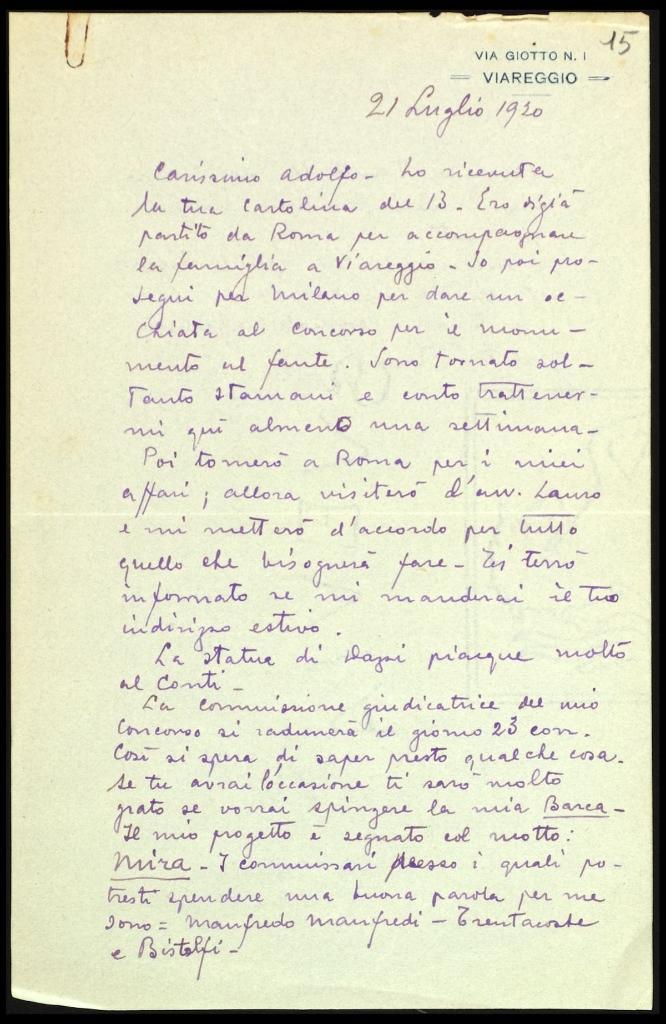 15
VIA GIOTTO N. 1
VIAREGGIO
21 Luglio 1920
Carissimo Adolfo - Ho ricevuta
la tua cartolina del 13 - Ero digià
partito da Roma per accompagnare
la famiglia a Viareggio - Io poi pro-
seguì per Milano per dare un oc-
chiata al concorso per il monu-
mento al fante. Sono tornato sol-
tanto stamani e conto trattener-
mi quì almeno una settimana -
Poi tornerò a Roma per i miei
affari ; allora visiterò l'avv. Lauro
e mi metterò d'accordo per tutto
quello che bisognerà fare - Ti terrò
informato se mi manderai il tuo
indirizzo estivo.
La statua di Dazzi piacque molto
al Conti -
La commissione giudicatrice del mio
concorso si radunerà il giorno 23 corr.
Così si spera di saper presto qualche cosa.
Se tu avrai l'occasione ti sarò molto
grato se vorrai spingere la mia Barca -
Il mio progetto è segnato col motto:
Mira - I commissari presso i quali po-
tresti spendere una buona parola per me
sono = Manfredo Manfredi - Trentacoste
e Bistolfi -